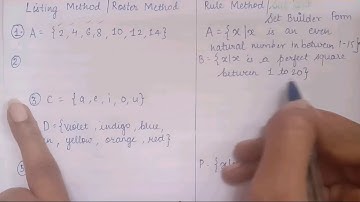 Listing Method / Roster Method
Rule Method /
Set Builder Form
① A = {2, 4, 6, 8, 10, 12, 14}
A = {x | x is an even
natural number in between 1-15}
②
B = {x | x is a perfect square
between 1 to 20}
③ C = {a, e, i, o, u}
D = {violet, indigo, blue,
yellow, orange, red}
P = {x |